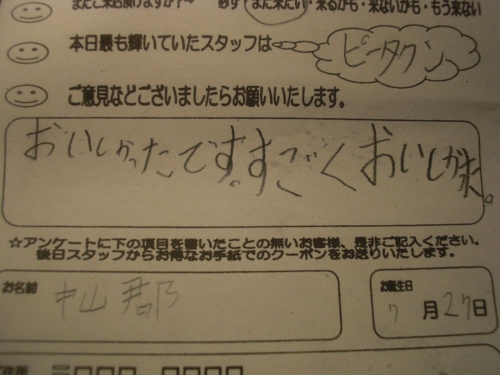 また来たい・来るかも・来ないかも・もう来ない
本日最も輝いていたスタッフは ピータクン
ご意見などございましたらお願いいたします。
おいしかったです。すごくおいしかた。
☆アンケートに下の項目を書いたことの無いお客様、是非ご記入ください。
後日スタッフからお得なお手紙でのクーポンをお送りいたします。
お名前 お誕生日
中山 君郎 7月27日